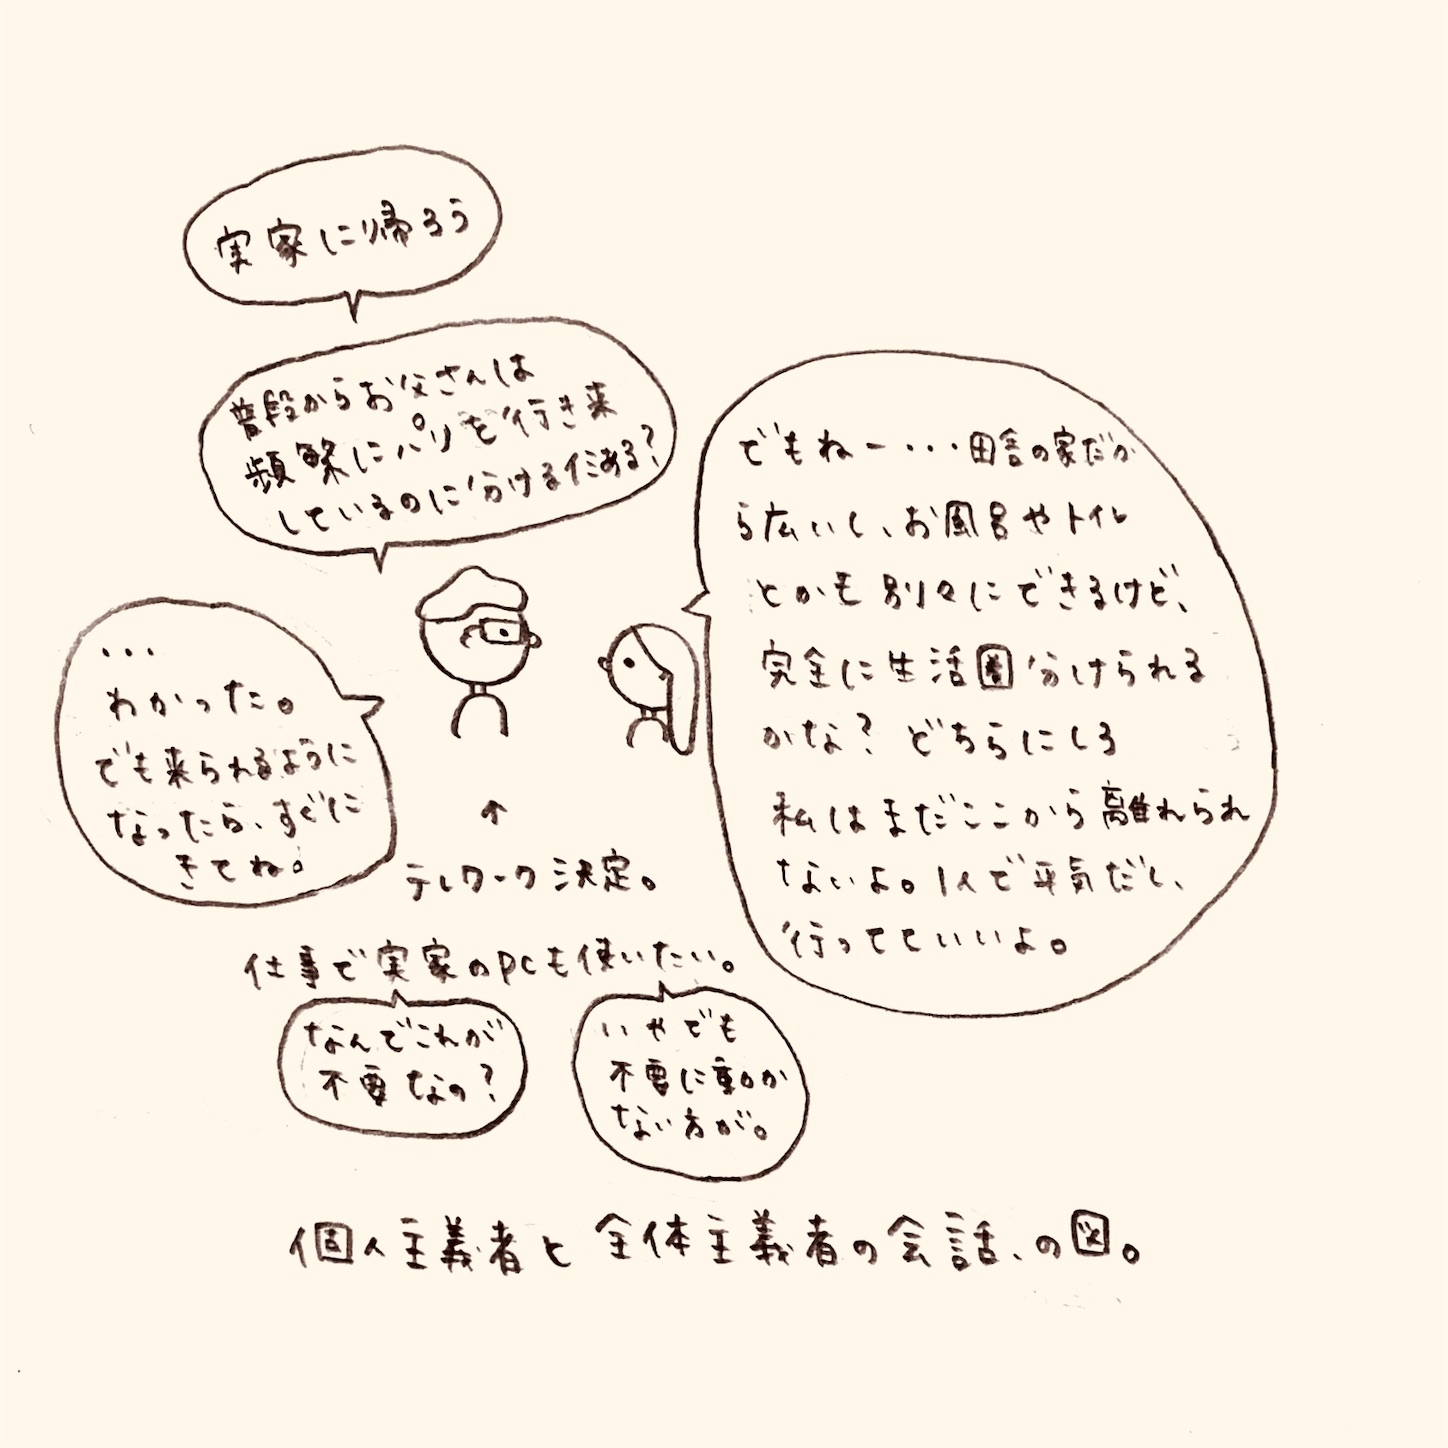 実家に帰ろう
普段からお父さんは
頻繁にパリを行き来
しているのに分ける仁ある?
でもねー・・・田舎の家だか
ら広いし、お風呂やトイレ
とかも別々にできるけど、
完全に生活圏分けられる
かな?どちらにしろ
私はまだここから離れられ
ないよ。1人で平気だし、
行ってていいよ。
・・・
わかった。
でも来られるように
なったら、すぐに
きてね。
↑
テレワーク決定。
仕事で実家のPCも使いたい。
なんでこれが
不要なの?
いやでも
不要に動か
ない方が。
個人主義者と全体主義者の会話、の図。